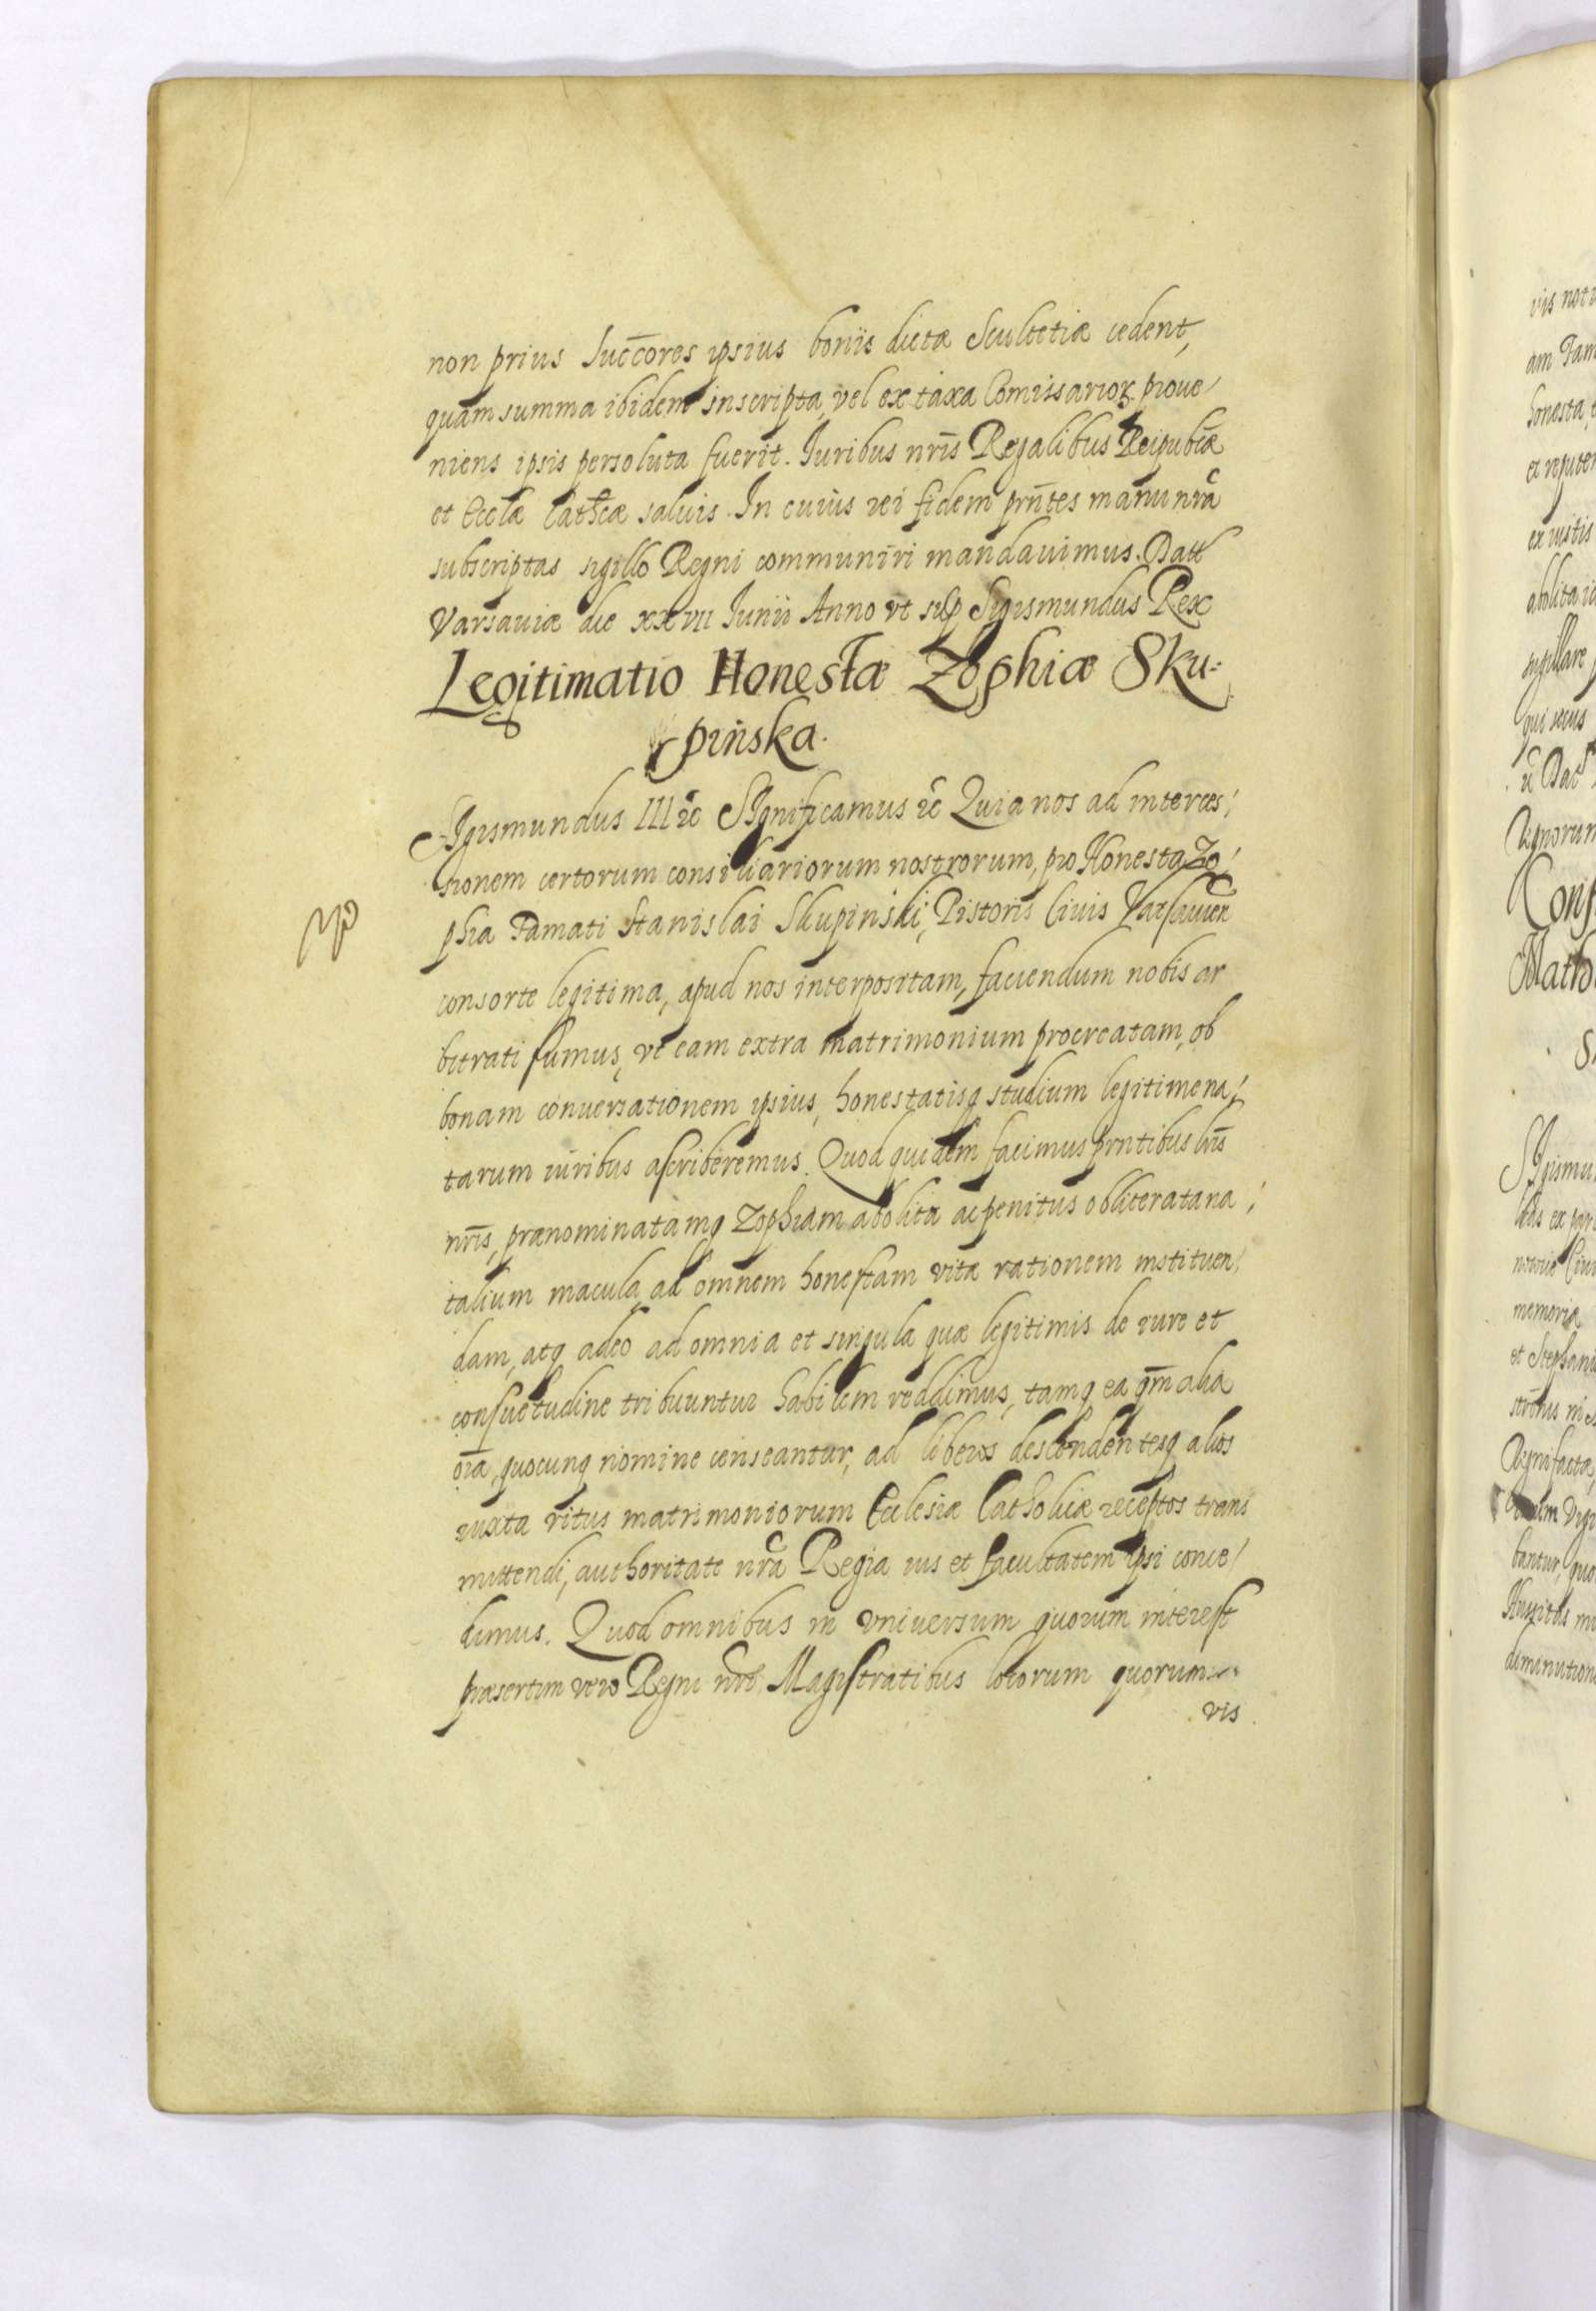 non prius Succ̄ores ipsius bonis dictæ Scultetiæ cedent,
quam summa ibidem inscripta, vel ex taxa Comissarioꝝ proue/
niens ipsis persoluta fuerit. Iuribus nr̄is Regalibus Reipub̄cæ
et Eccl̄æ Cath̄cæ saluis. In cuius rei fidem prn̄tes manu nr̄a
subscriptas sigillo Regni communiri mandauimus. Datt
Varsauiæ die xxvii Iunii Anno vt sup Sigismundus Rex
Legitimatio Honestæ Zophiæ Sku-
pinska.
Sigismundus III ꝛc Significamus ꝛc Quia nos ad interces/
sionem certorum consiliariorum nostrorum, pro Honesta Zo/
phia Famati Stanislai Skupinski, Pistoris Ciuis Varsauien̄
consorte legitima, apud nos interpositam, faciendum nobis ar
bitrati sumus, vt eam extra matrimonium procreatam, ob
bonam conuersationem ipsius, honestatisq studium legitime na/
tarum iuribus ascriberemus. Quod quidem facimus prn̄tibus lr̄is
nr̄is, prænominatamq Zophiam abolita ac penitus obliterata na/
talium macula ad omnem honestam vitæ rationem instituen/
dam, atq adeo ad omnia et singula quæ legitimis de iure et
consuetudine tribuuntur habilem reddimus, tamq ea qm̄ alia
oīa, quocunq nomine censeantur, ad liberos descendentesq alios
iuxta ritus matrimoniorum Ecclesiæ Catholicæ receptos trans
mittendi, authoritate nr̄a Regia ius et facultatem ipsi conce/
dimus. Quod omnibus in vniuersum quorum interest
præsertim vero Regni nr̄i Magistratibus locorum quorum
vis